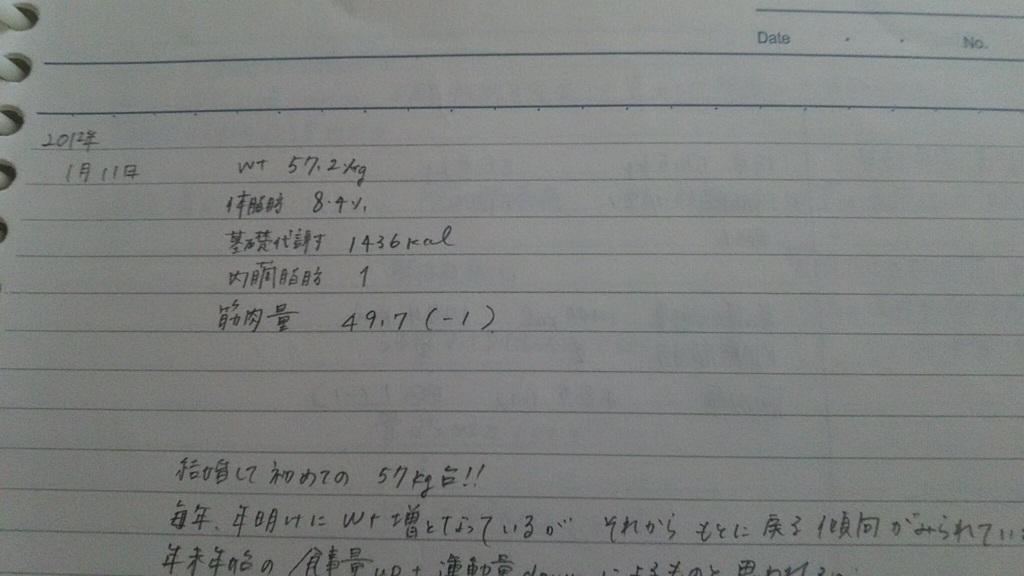 Date ・ ・ No.
2012年
1月11日 Wt 57.2kg
体脂肪 8.4%
基礎代謝 1436kcal
内臓脂肪 1
筋肉量 49.7 (-1)
結婚して初めての 57kg台!!
毎年、年明けに Wt増となっているが それから もとに戻る傾向がみられてい
年末年始の 食事量up+運動量down によるものと思われる